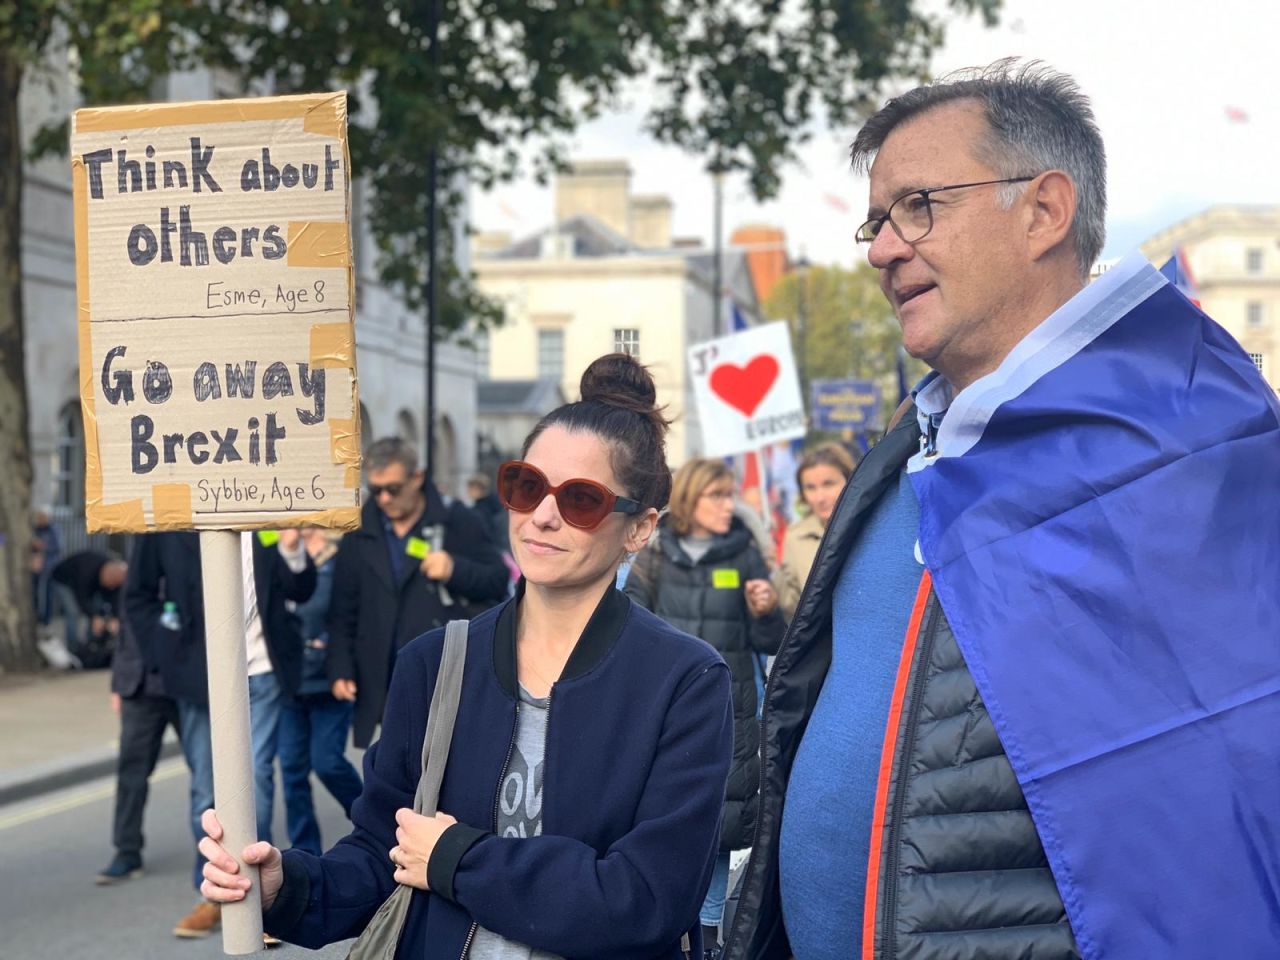 Think about
others
Esme, Age 8
Go away
Brexit
Sybbie, Age 6
J'